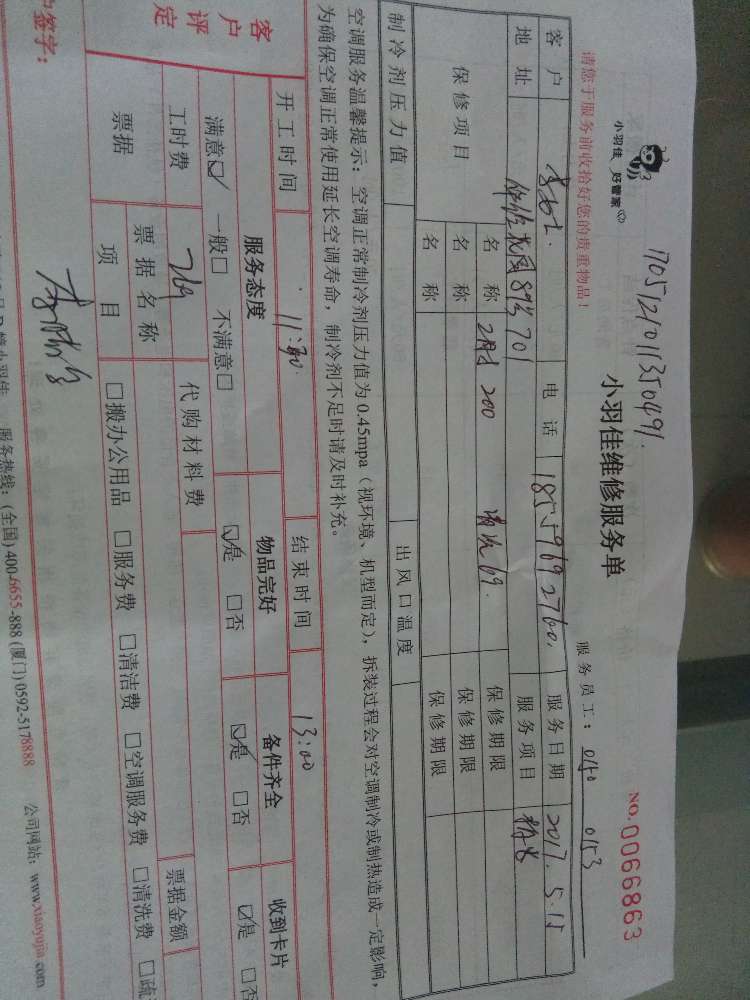 小羽佳 好管家
1705121011350491
小羽佳维修服务单
NO. 0066863
请您于服务前收拾好您的贵重物品！
服务员工： 0150 0153
客户 电话 18559692760 服务日期 2017.5.15
地址 701 服务项目
保修项目 名称 200 清洗69. 保修期限
名称 保修期限
名称 保修期限
制冷剂压力值 出风口温度
空调服务温馨提示：空调正常制冷剂压力值为0.45mpa（视环境、机型而定），拆装过程会对空调制冷或制热造成一定影响，
为确保空调正常使用延长空调寿命，制冷剂不足时请及时补充。
开工时间 11:30 结束时间 13:00
客户评定 服务态度 物品完好 备件齐全 收到卡片
满意☑ 一般□ 不满意□ ☑是 □否 ☑是 □否 ☑是 □否
工时费 269 代购材料费
票据 票据名称 票据金额
项目 □搬办公用品 □服务费 □清洁费 □空调服务费 □清洗费
签字：
服务热线：(全国) 400-6655-888 (厦门) 0592-5178888 公司网站：www.xiaoyujia.com